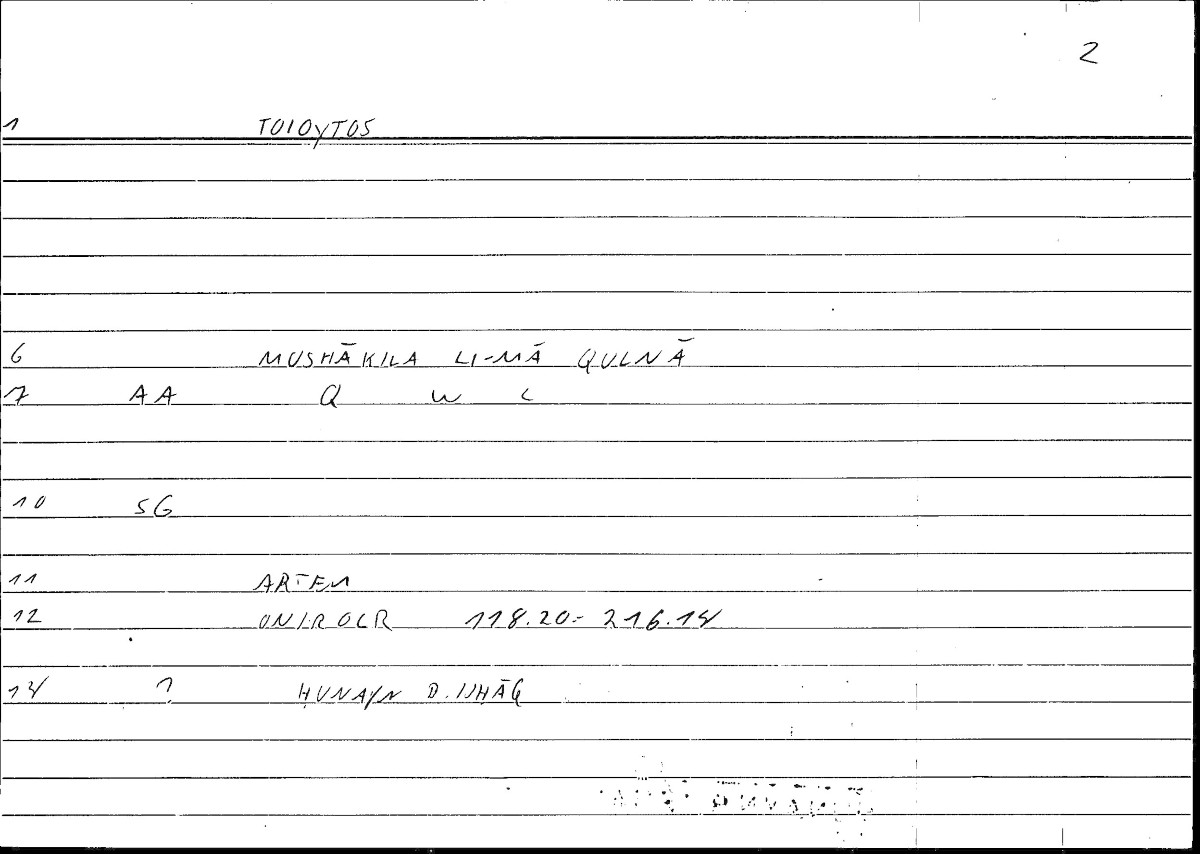 2
1 TOIOYTOS
6 MUSHĀKILA LI-MĀ QULNĀ
7 AA Q W L
10 SG
11 ARTEM
12 ONIROCR 118.20-216.14
14 ? ḤUNAYN B. ISḤĀQ